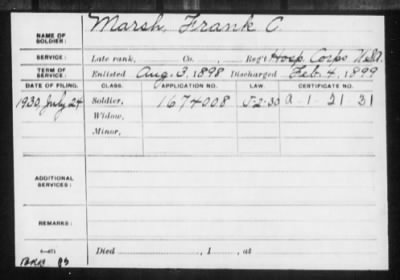 NAME OF SOLDIER: Marsh, Frank C.
SERVICE: Late rank, Co. Reg't Hosp. Corps U.S.A.
TERM OF SERVICE: Enlisted Aug. 3, 1898 Discharged Feb. 4, 1899
DATE OF FILING. CLASS. APPLICATION NO. LAW CERTIFICATE NO.
1930, July 24 Soldier, 1674008 5-2-30 A-1-21-31
Widow,
Minor,
ADDITIONAL SERVICES:
REMARKS:
Died , 1 , at